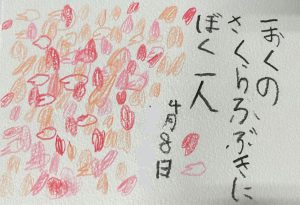 おくの
さくらふぶきに
ぼく一人
4月8日